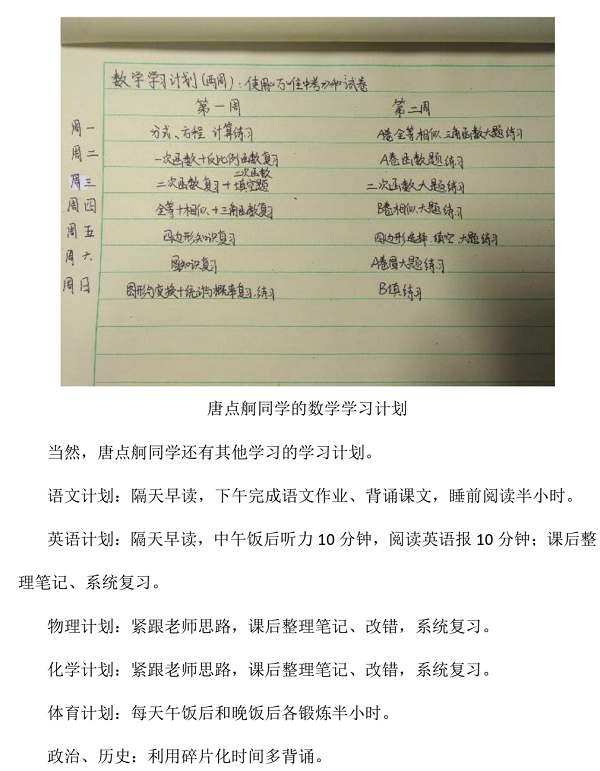 数学学习计划(两周)：使用《万唯中考》和试卷
第一周 第二周
周一 分式、方程 计算练习 A卷全等相似、三角函数大题练习
周二 一次函数+反比例函数复习 A卷函数题练习
周三 二次函数复习+二次函数填空题 二次函数大题练习
周四 全等+相似+三角函数复习 B卷相似大题练习
周五 四边形知识复习 四边形选择、填空、大题练习
周六 圆知识复习 A卷圆大题练习
周日 图形与变换+统计与概率复习、练习 B填练习
唐点舸同学的数学学习计划
当然，唐点舸同学还有其他学习的学习计划。
语文计划：隔天早读，下午完成语文作业、背诵课文，睡前阅读半小时。
英语计划：隔天早读，中午饭后听力 10 分钟，阅读英语报 10 分钟；课后整
理笔记、系统复习。
物理计划：紧跟老师思路，课后整理笔记、改错，系统复习。
化学计划：紧跟老师思路，课后整理笔记、改错，系统复习。
体育计划：每天午饭后和晚饭后各锻炼半小时。
政治、历史：利用碎片化时间多背诵。